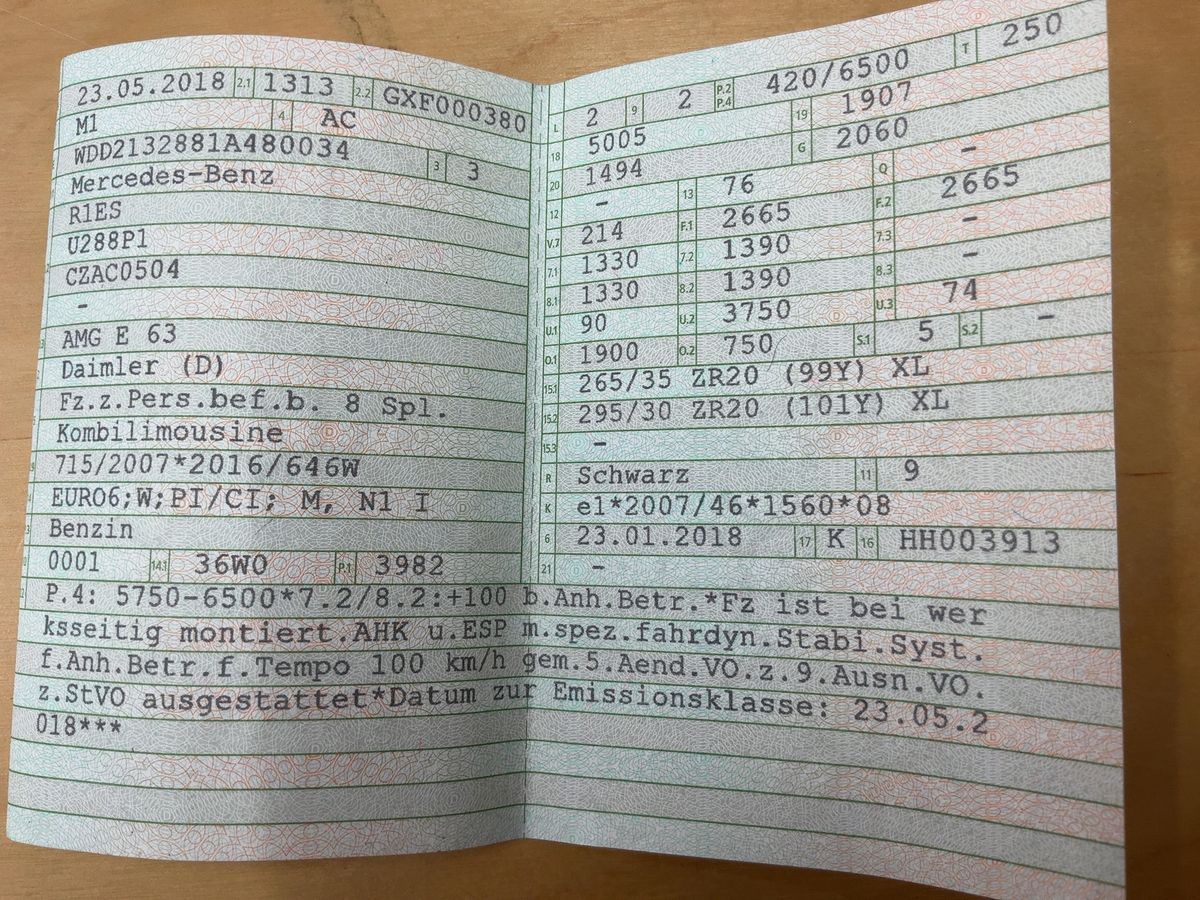 23.05.2018 2.1 1313 2.2 GXF000380
M1 4 AC
WDD2132881A480034 3 3
Mercedes-Benz
R1ES
U288P1
CZAC0504
-
AMG E 63
Daimler (D)
Fz.z.Pers.bef.b. 8 Spl.
Kombilimousine
715/2007*2016/646W
EURO6;W;PI/CI; M, N1 I
Benzin
0001 14.1 36W0 P.1 3982
L 2 9 2 P.2 P.4 420/6500 T 250
18 5005 19 1907
20 1494 G 2060
12 - 13 76 Q -
V.7 214 F.1 2665 F.2 2665
7.1 1330 7.2 1390 7.3 -
8.1 1330 8.2 1390 8.3 -
U.1 90 U.2 3750 U.3 74
O.1 1900 O.2 750 S.1 5 S.2 -
15.1 265/35 ZR20 (99Y) XL
15.2 295/30 ZR20 (101Y) XL
15.3 -
R Schwarz 11 9
K e1*2007/46*1560*08
6 23.01.2018 17 K 16 HH003913
21 -
P.4: 5750-6500*7.2/8.2:+100 b.Anh.Betr.*Fz ist bei wer
ksseitig montiert.AHK u.ESP m.spez.fahrdyn.Stabi.Syst.
f.Anh.Betr.f.Tempo 100 km/h gem.5.Aend.VO.z.9.Ausn.VO.
z.StVO ausgestattet*Datum zur Emissionsklasse: 23.05.2
018***